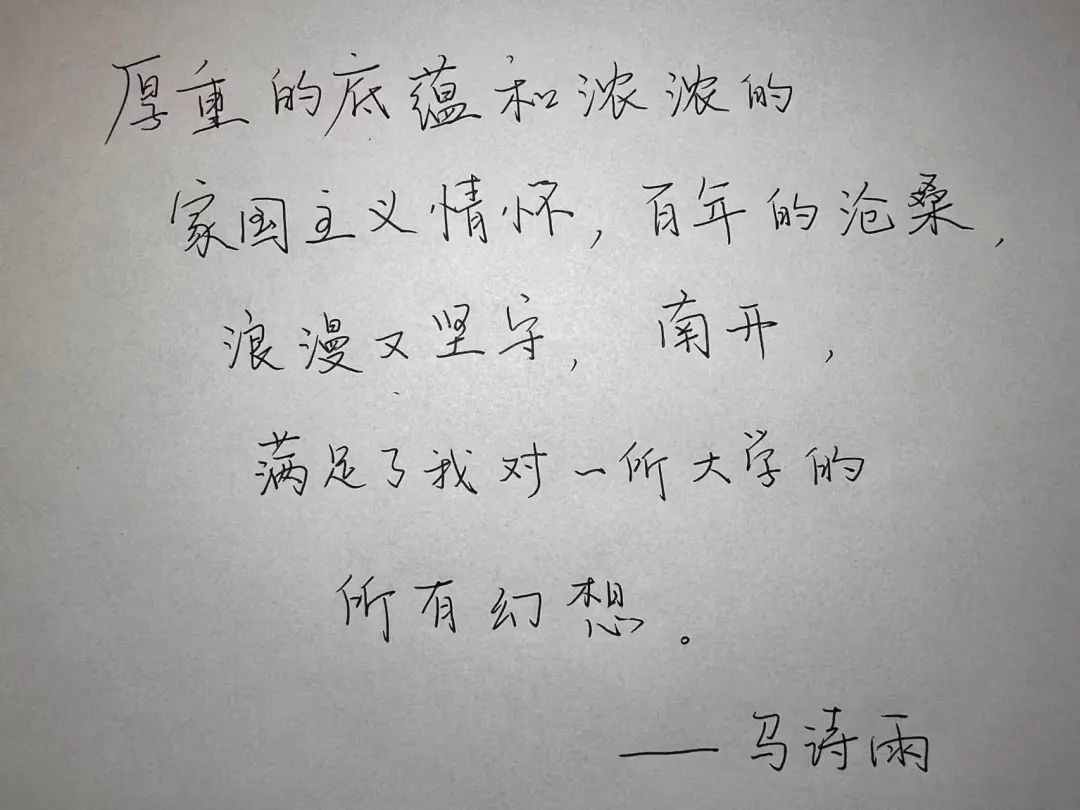 厚重的底蕴和浓浓的
家国主义情怀，百年的沧桑，
浪漫又坚守，南开，
满足了我对一所大学的
所有幻想。
——马诗雨